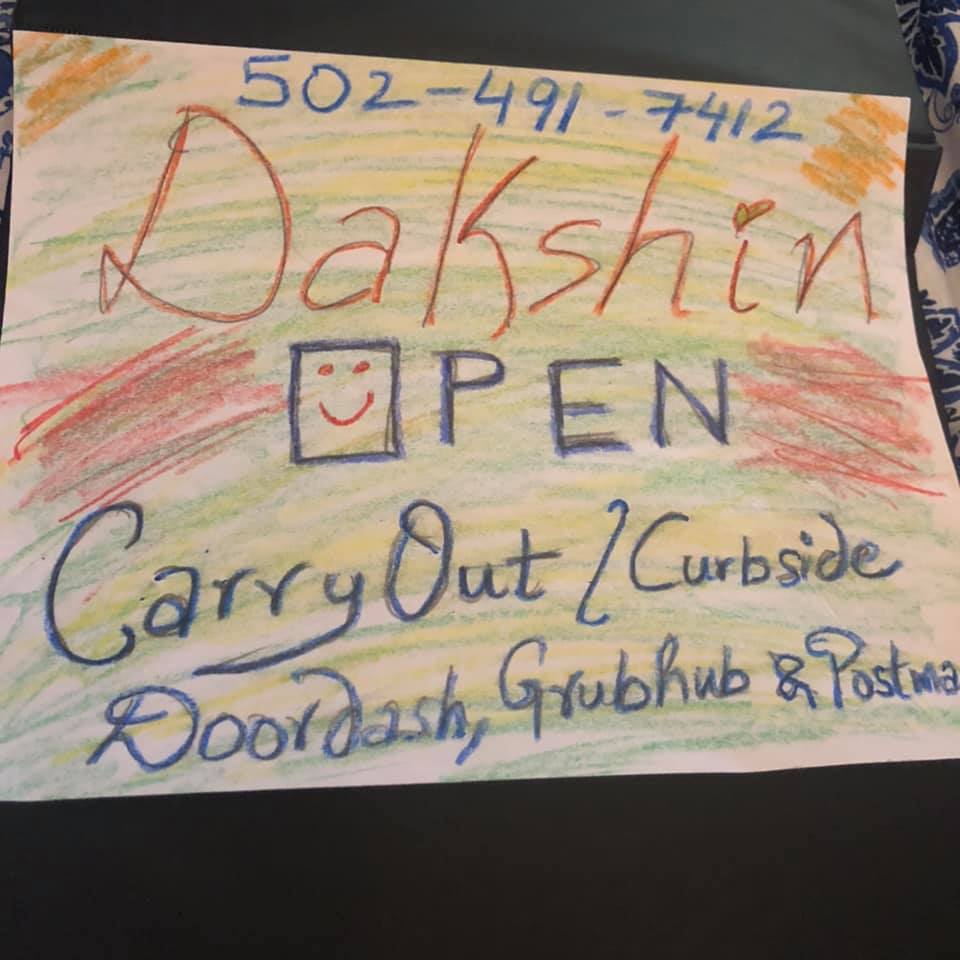 502-491-7412
Dakshin
OPEN
Carry Out / Curbside
Doordash, Grubhub & Postma